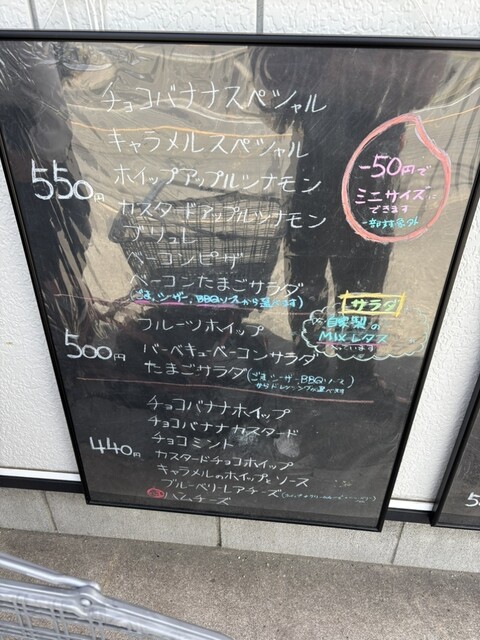 チョコバナナスペシャル
キャラメルスペシャル
550円
ホイップアップルシナモン
カスタードアップルシナモン
ブリュレ
ベーコンピザ
ベーコンたまごサラダ
(ごま、シーザー、BBQソースから選べます)
-50円で
ミニサイズに
できます
一部対象外
サラダ
自家製の
MIXレタス
500円
フルーツホイップ
バーベキューベーコンサラダ
たまごサラダ(ごま シーザー BBQソース)
からドレッシングが選べます
440円
チョコバナナホイップ
チョコバナナカスタード
チョコミント
カスタードチョコホイップ
キャラメルのホイップとソース
ブルーベリーレアチーズ
ハムチーズ